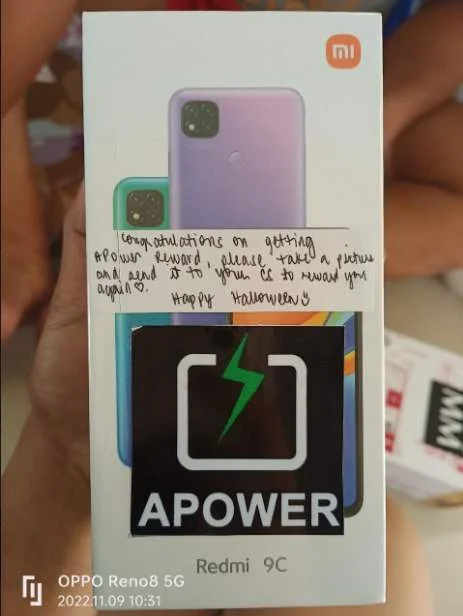 mi
Congratulations on getting
APower reward, please take a picture
and send it to your CS to reward you
again♡.
Happy Halloween
APOWER
Redmi 9C
MM
OPPO Reno8 5G
2022.11.09 10:31